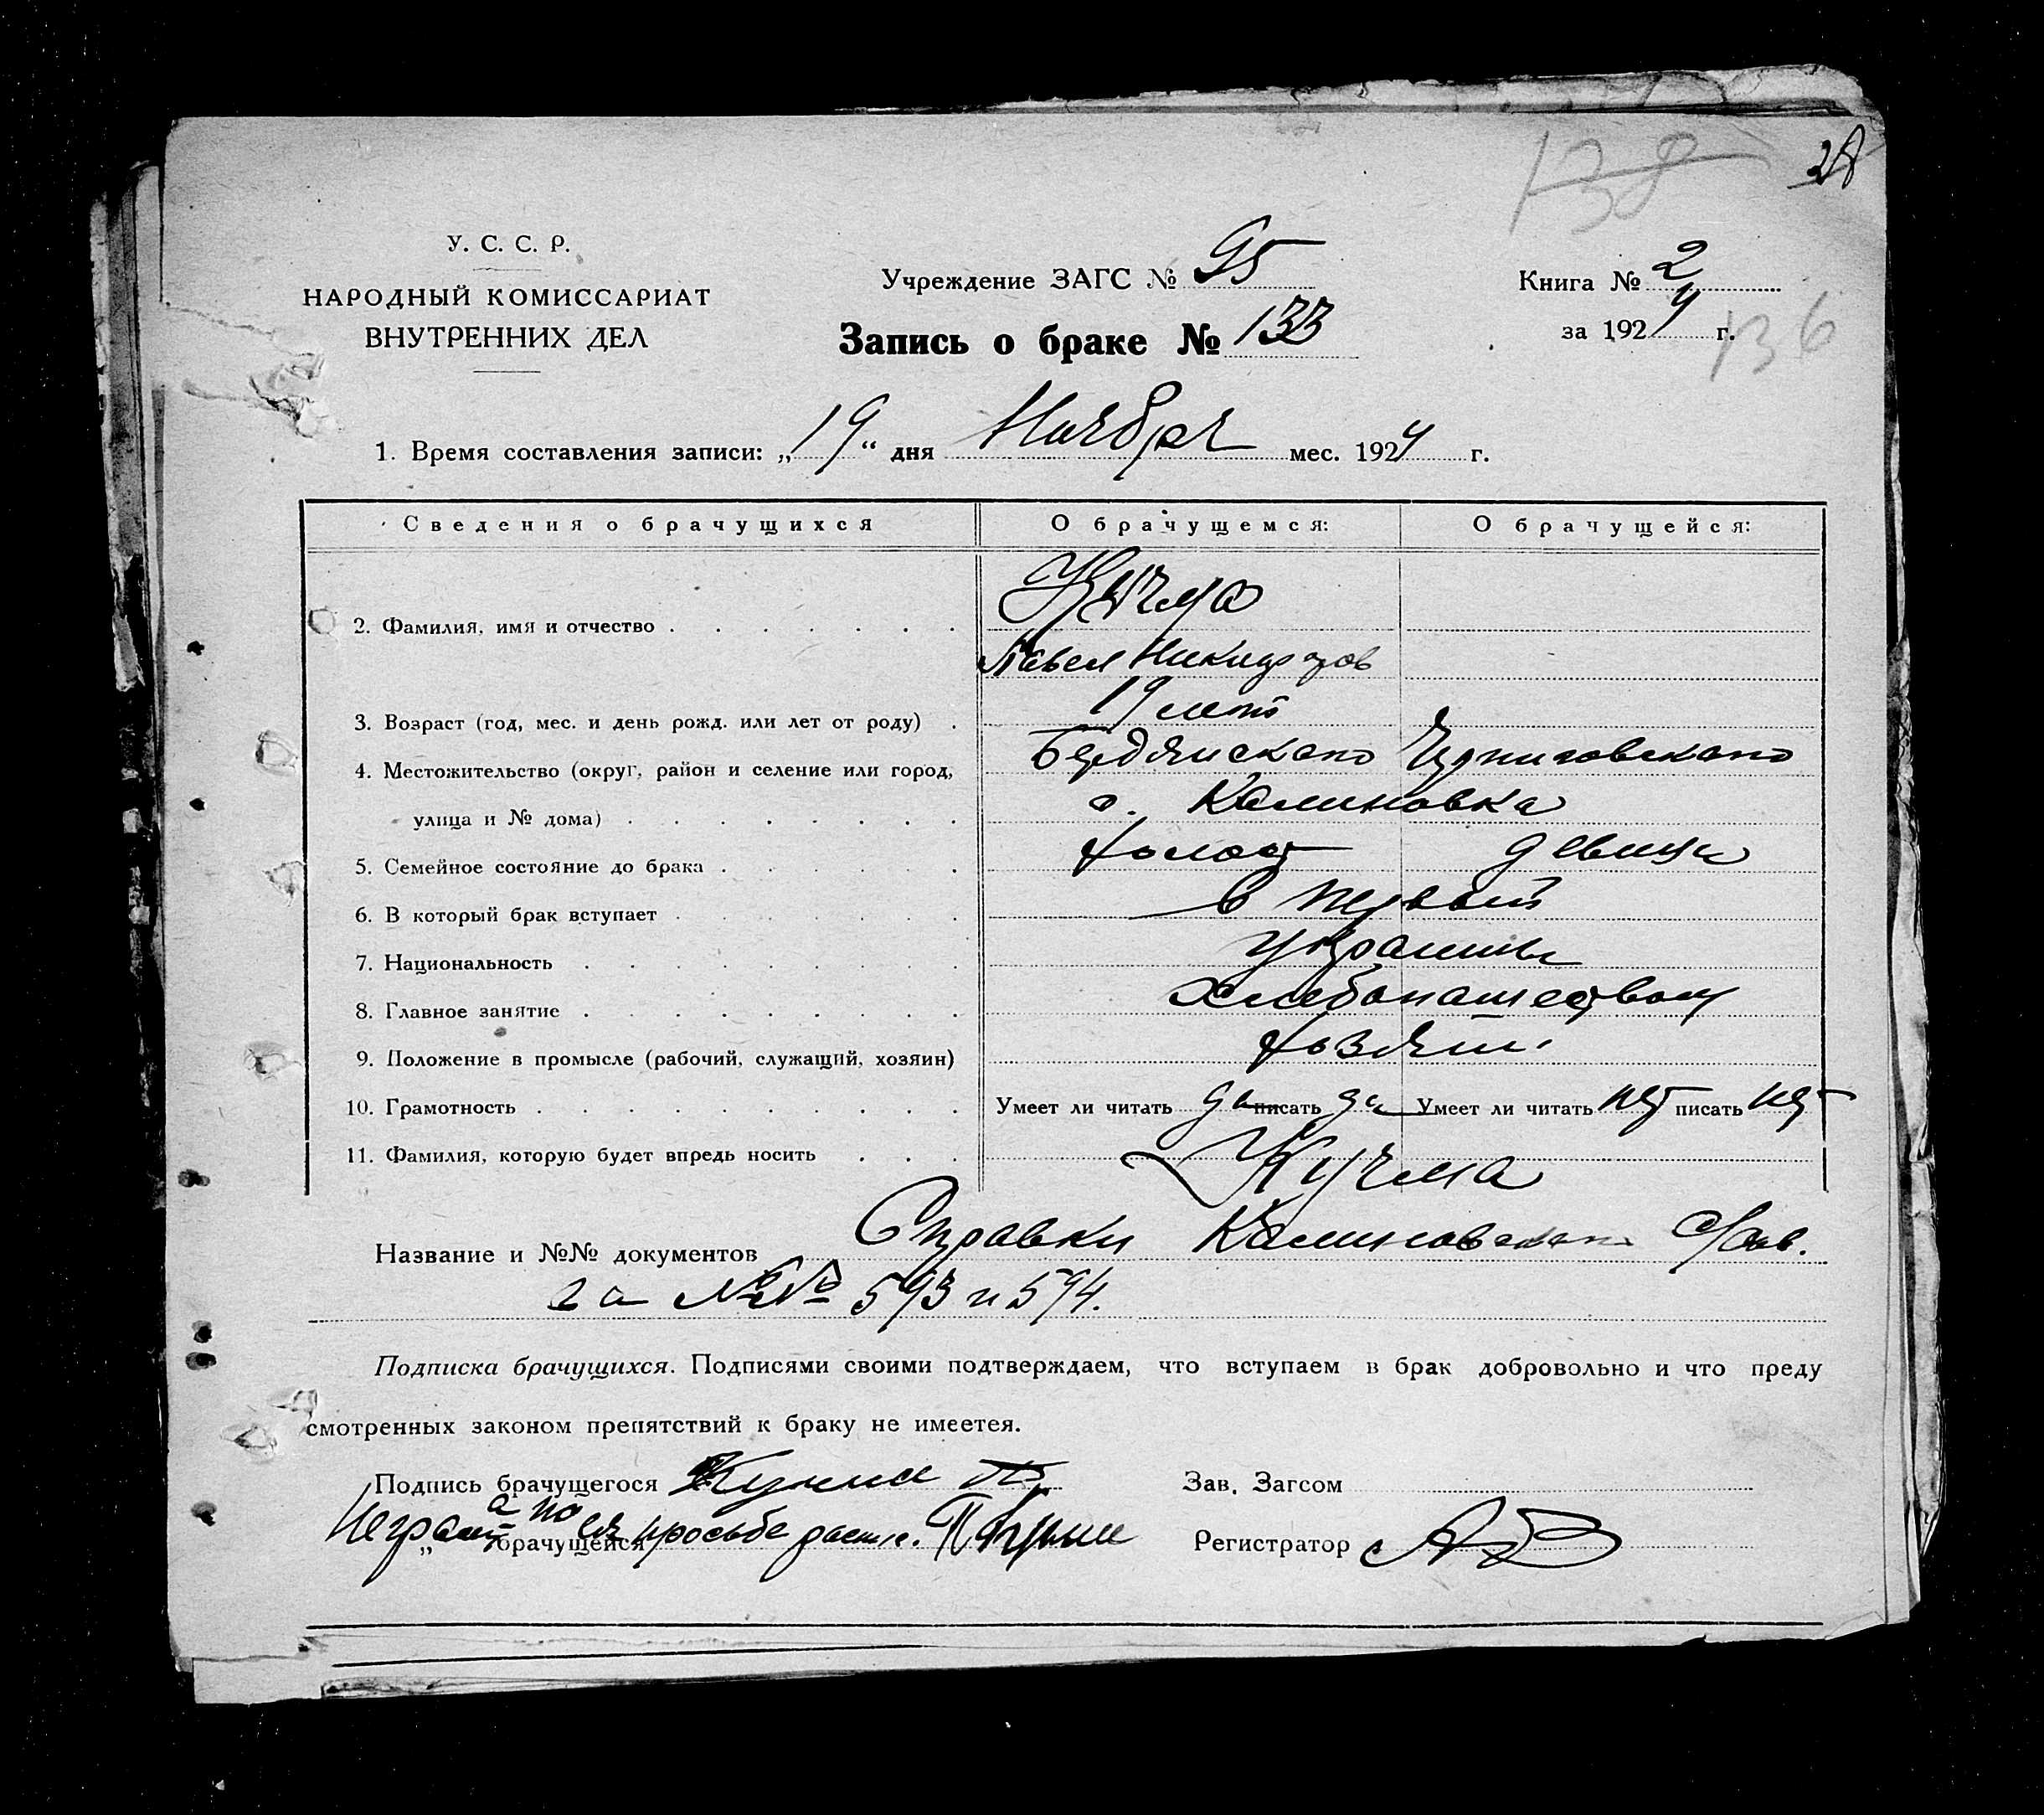 138
28
У. С. С. Р.
НАРОДНЫЙ КОМИССАРИАТ
ВНУТРЕННИХ ДЕЛ
Учреждение ЗАГС № 95
Книга № 2
Запись о браке № 133
за 1924 г.
136
1. Время составления записи: „19“ дня Ноября мес. 1924 г.
Сведения о брачущихся О брачущемся: О брачущейся:
Кучма
2. Фамилия, имя и отчество
Павел Никифоров
3. Возраст (год, мес. и день рожд. или лет от роду) 19 лет
4. Местожительство (округ, район и селение или город, Бердянского Черниговского
улица и № дома) с. Калиновка
5. Семейное состояние до брака холост девица
6. В который брак вступает в первый
7. Национальность украинцы
8. Главное занятие Хлебопашеством
9. Положение в промысле (рабочий, служащий, хозяин) хозяин
10. Грамотность Умеет ли читать да писать да Умеет ли читать нет писать нет
11. Фамилия, которую будет впредь носить Кучма
Название и №№ документов Справки Калиновского с/сов.
за №№ 593 и 594.
Подписка брачущихся. Подписями своими подтверждаем, что вступаем в брак добровольно и что преду
смотренных законом препятствий к браку не имеетея.
Подпись брачущегося Кучма П. Зав. Загсом
Неграмот. а по её просьбе распис.
„ брачущейся Регистратор